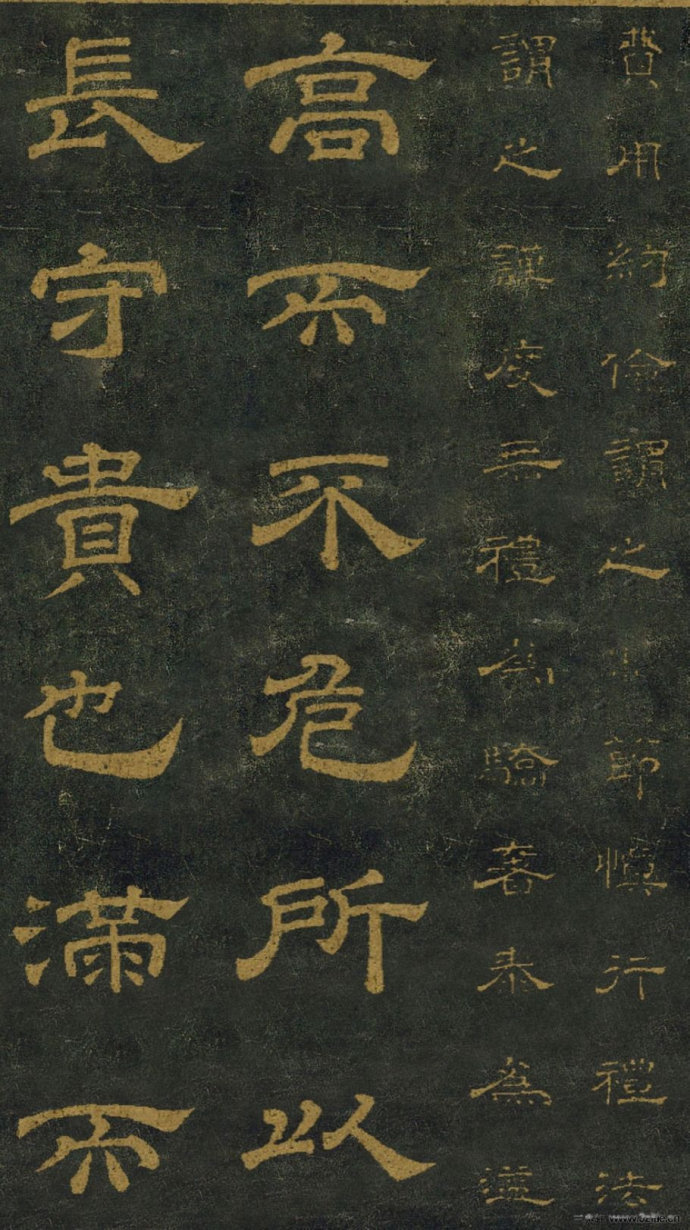 費用約儉謂之節慎行禮法
謂之謹度無禮為驕奢泰為溢
高而不危所以
長守貴也滿而不